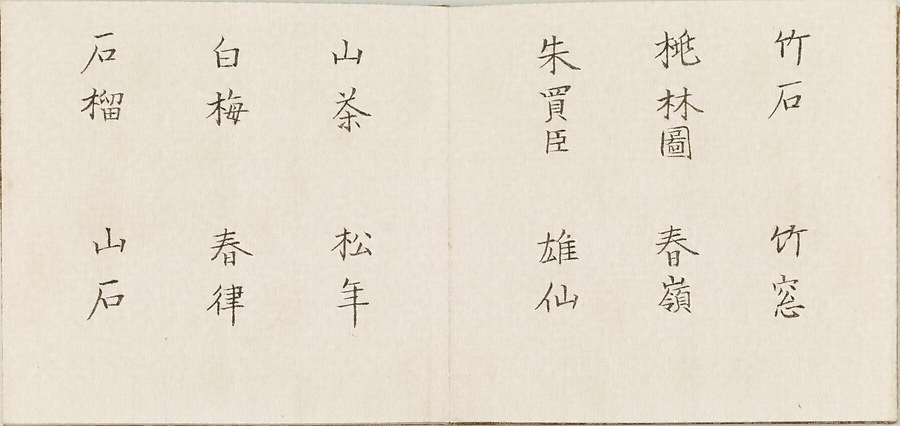 竹石 竹窓
桃林圖 春嶺
朱買臣 雄仙
山茶 松年
白梅 春律
石榴 山石